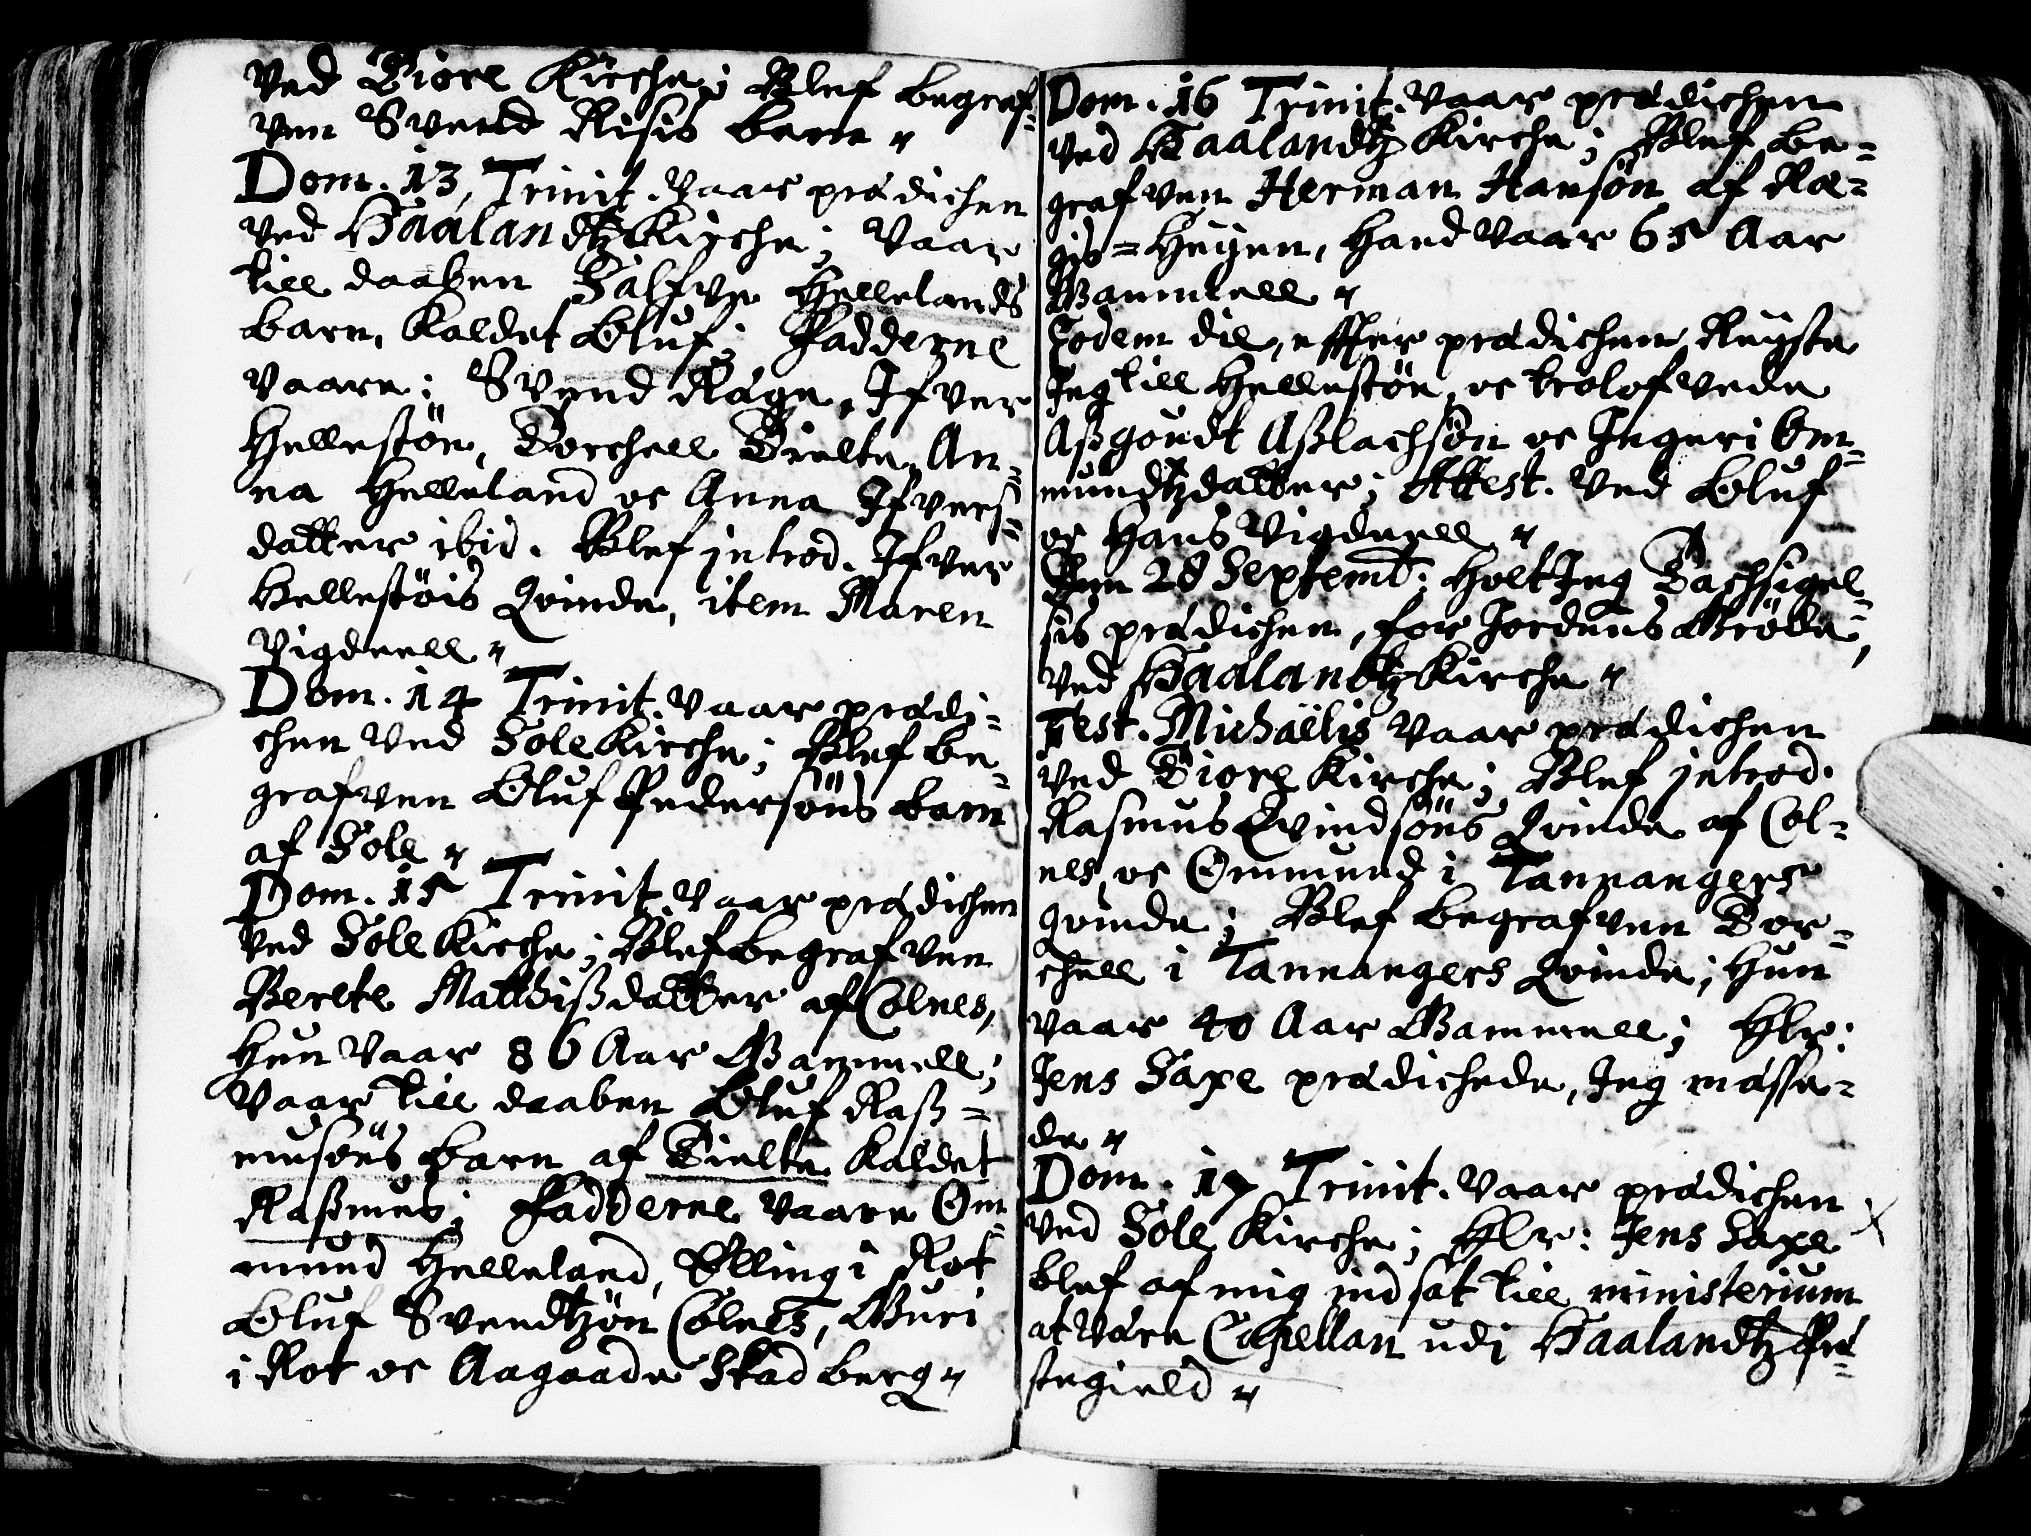 Ved Tiore Kirche; Blef begraf-
ven Svend Risis barn
Dom. 13, Trinit. Vaar prædichen
Ved Haalandtz Kirche; Vaar
till daaben Salfve Hellelands
barn, kaldet Oluf; Fadderne
vaare: Svend Ræge, Ifver
Hellestöe, Torchell Tielte, An-
na Helleland oc Anna Ifvers-
datter ibid. Blef introd. Ifver
Hellestöis Qvinde, item Maren
Vigdeell
Dom. 14 Trinit. vaar prædi-
chen ved Sole Kirche; Blef be-
grafven Oluf Pedersöns barn
af Sole
Dom. 15 Trinit. vaar prædichen
ved Sole Kirche; Blef begrafven
Berete Matthißdatter af Colnes,
Hun vaar 86 Aar Gammell;
Vaar till daaben Oluf Raß-
musöns barn af Tielte kaldet
Raßmus; Fadderne vaare Om-
mund Helleland, Elling i Rot
Oluf Svendtzön Colnes, Guri
i Rot oc Aagaade Skadberg
Dom. 16 Trinit. vaar prædichen
ved Haalandtz Kirche; Blef be-
grafven Herman Hansön af Ræ-
gis-Heyen, Hand vaar 65 Aar
Gammell
Eodem die, effter prædichen Reyste
Jeg till Hellestöe, oc trolofvede
Aßgoudt Aßlachsön oc Ingeri Om-
mundtzdatter; Attest. ved Oluf
oc Hans Vigdeell
Den 28 Septemb: holt Jeg Tachsigel-
sis prædichen, for Jordens Gröde,
ved Haalandtz Kirche
Fest. Michaëlis vaar prædichen
ved Tiore Kirche; Blef introd.
Rasmus Evindsöns Qvinde af Col-
nes, oc Ommund i Tannangers
qvinde; Blef begrafven Tor-
chell i Tannangers Qvinde; Hun
vaar 40 Aar Gammell; Hlr:
Jens Saxe prædichede, Jeg mässe-
de
Dom. 17 Trinit. Vaar prædichen
ved Sole Kirche; Hlr: Jens Saxe
blef af mig indsat till ministerium
at være Capellan udj Haalandtz Præ-
stegield